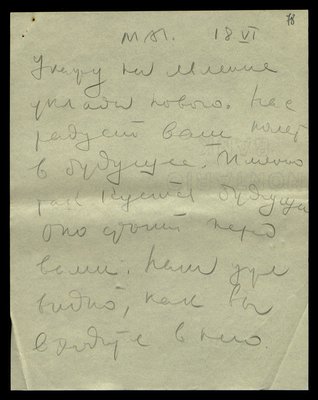 78
МАП. 18 VI
на
уклада нового. Нас
радует ваш полет
в будущее. Именно
будущее
оно стоит перед
вами. Нам уже
видно, как вы
входите в него.